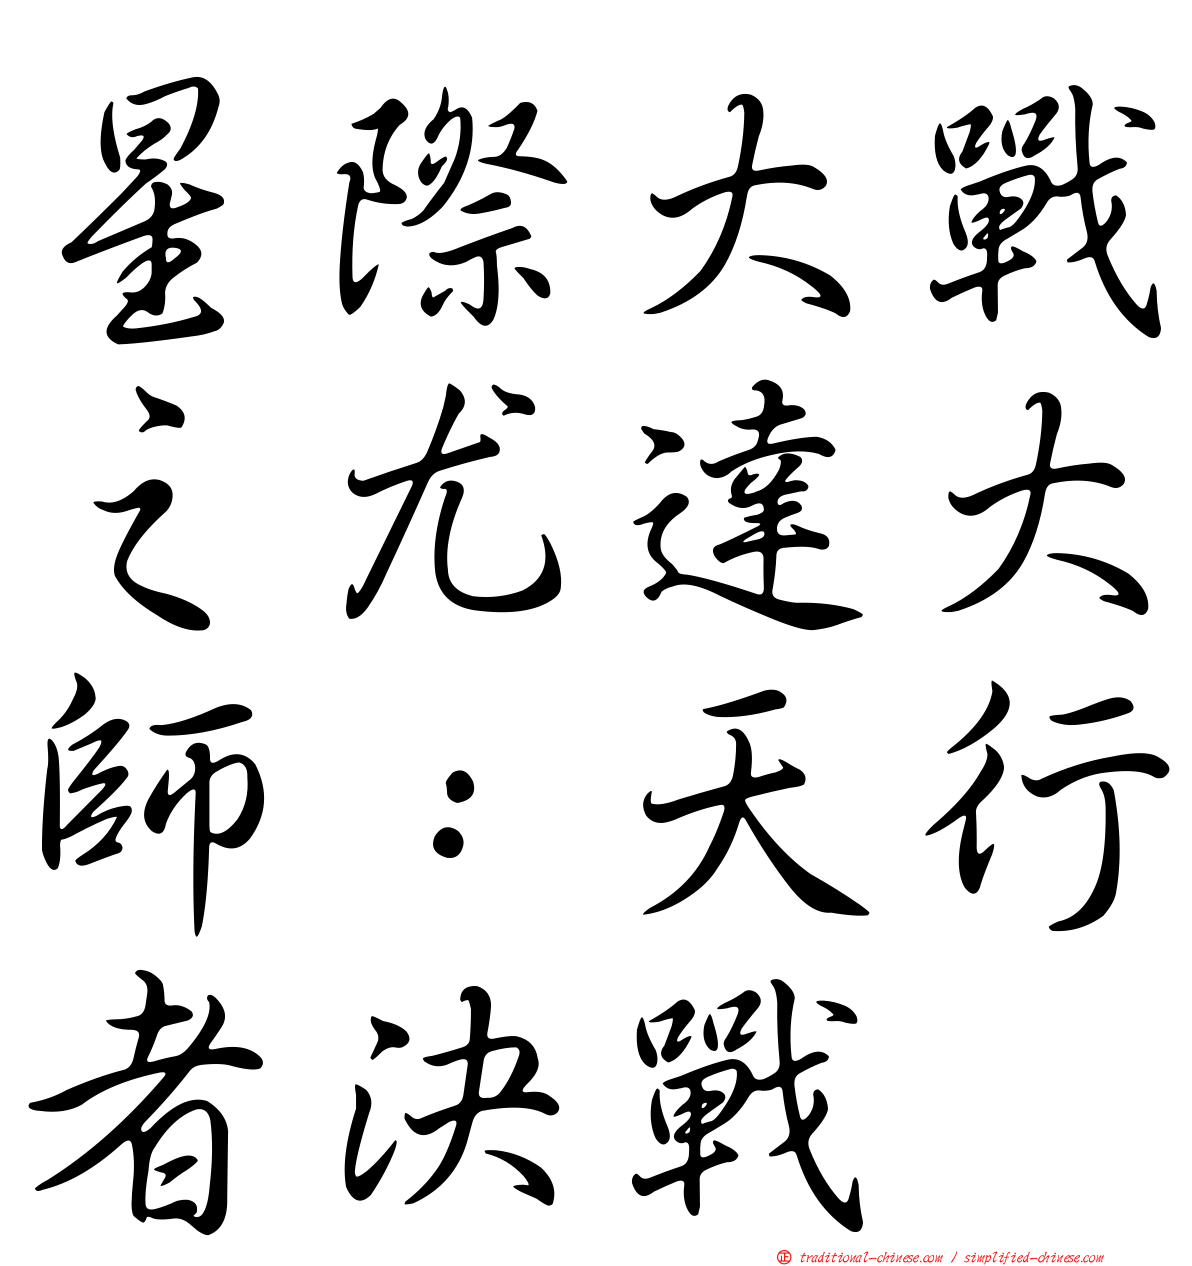 星際大戰
之尤達大
師：天行
者決戰
㊣ traditional-chinese.com / simplified-chinese.com